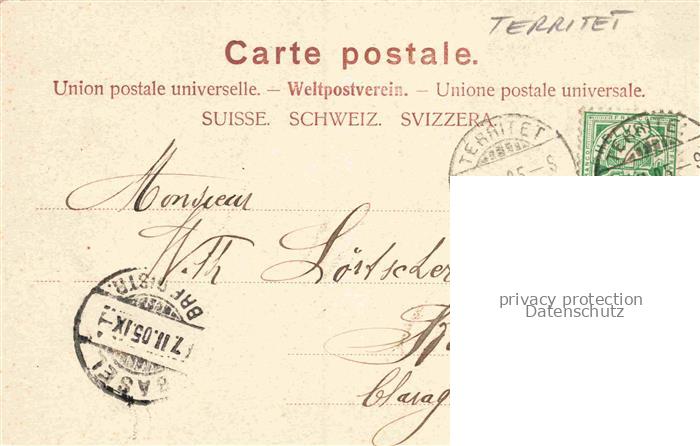 TERRITET
Carte postale.
Union postale universelle. — Weltpostverein. — Unione postale universale.
SUISSE. SCHWEIZ. SVIZZERA.
TERRITET
TERRITET
05-8
Monsieur
W. Th Lörtscher
Clarag
BASEL
7.II.05.IX-1
BRF. DISTR.
privacy protection
Datenschutz